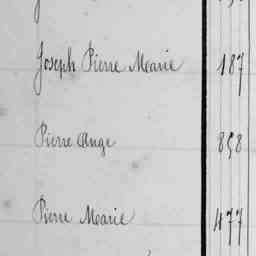 Joseph Pierre Marie 187
Pierre Ange 858
Pierre Marie 477